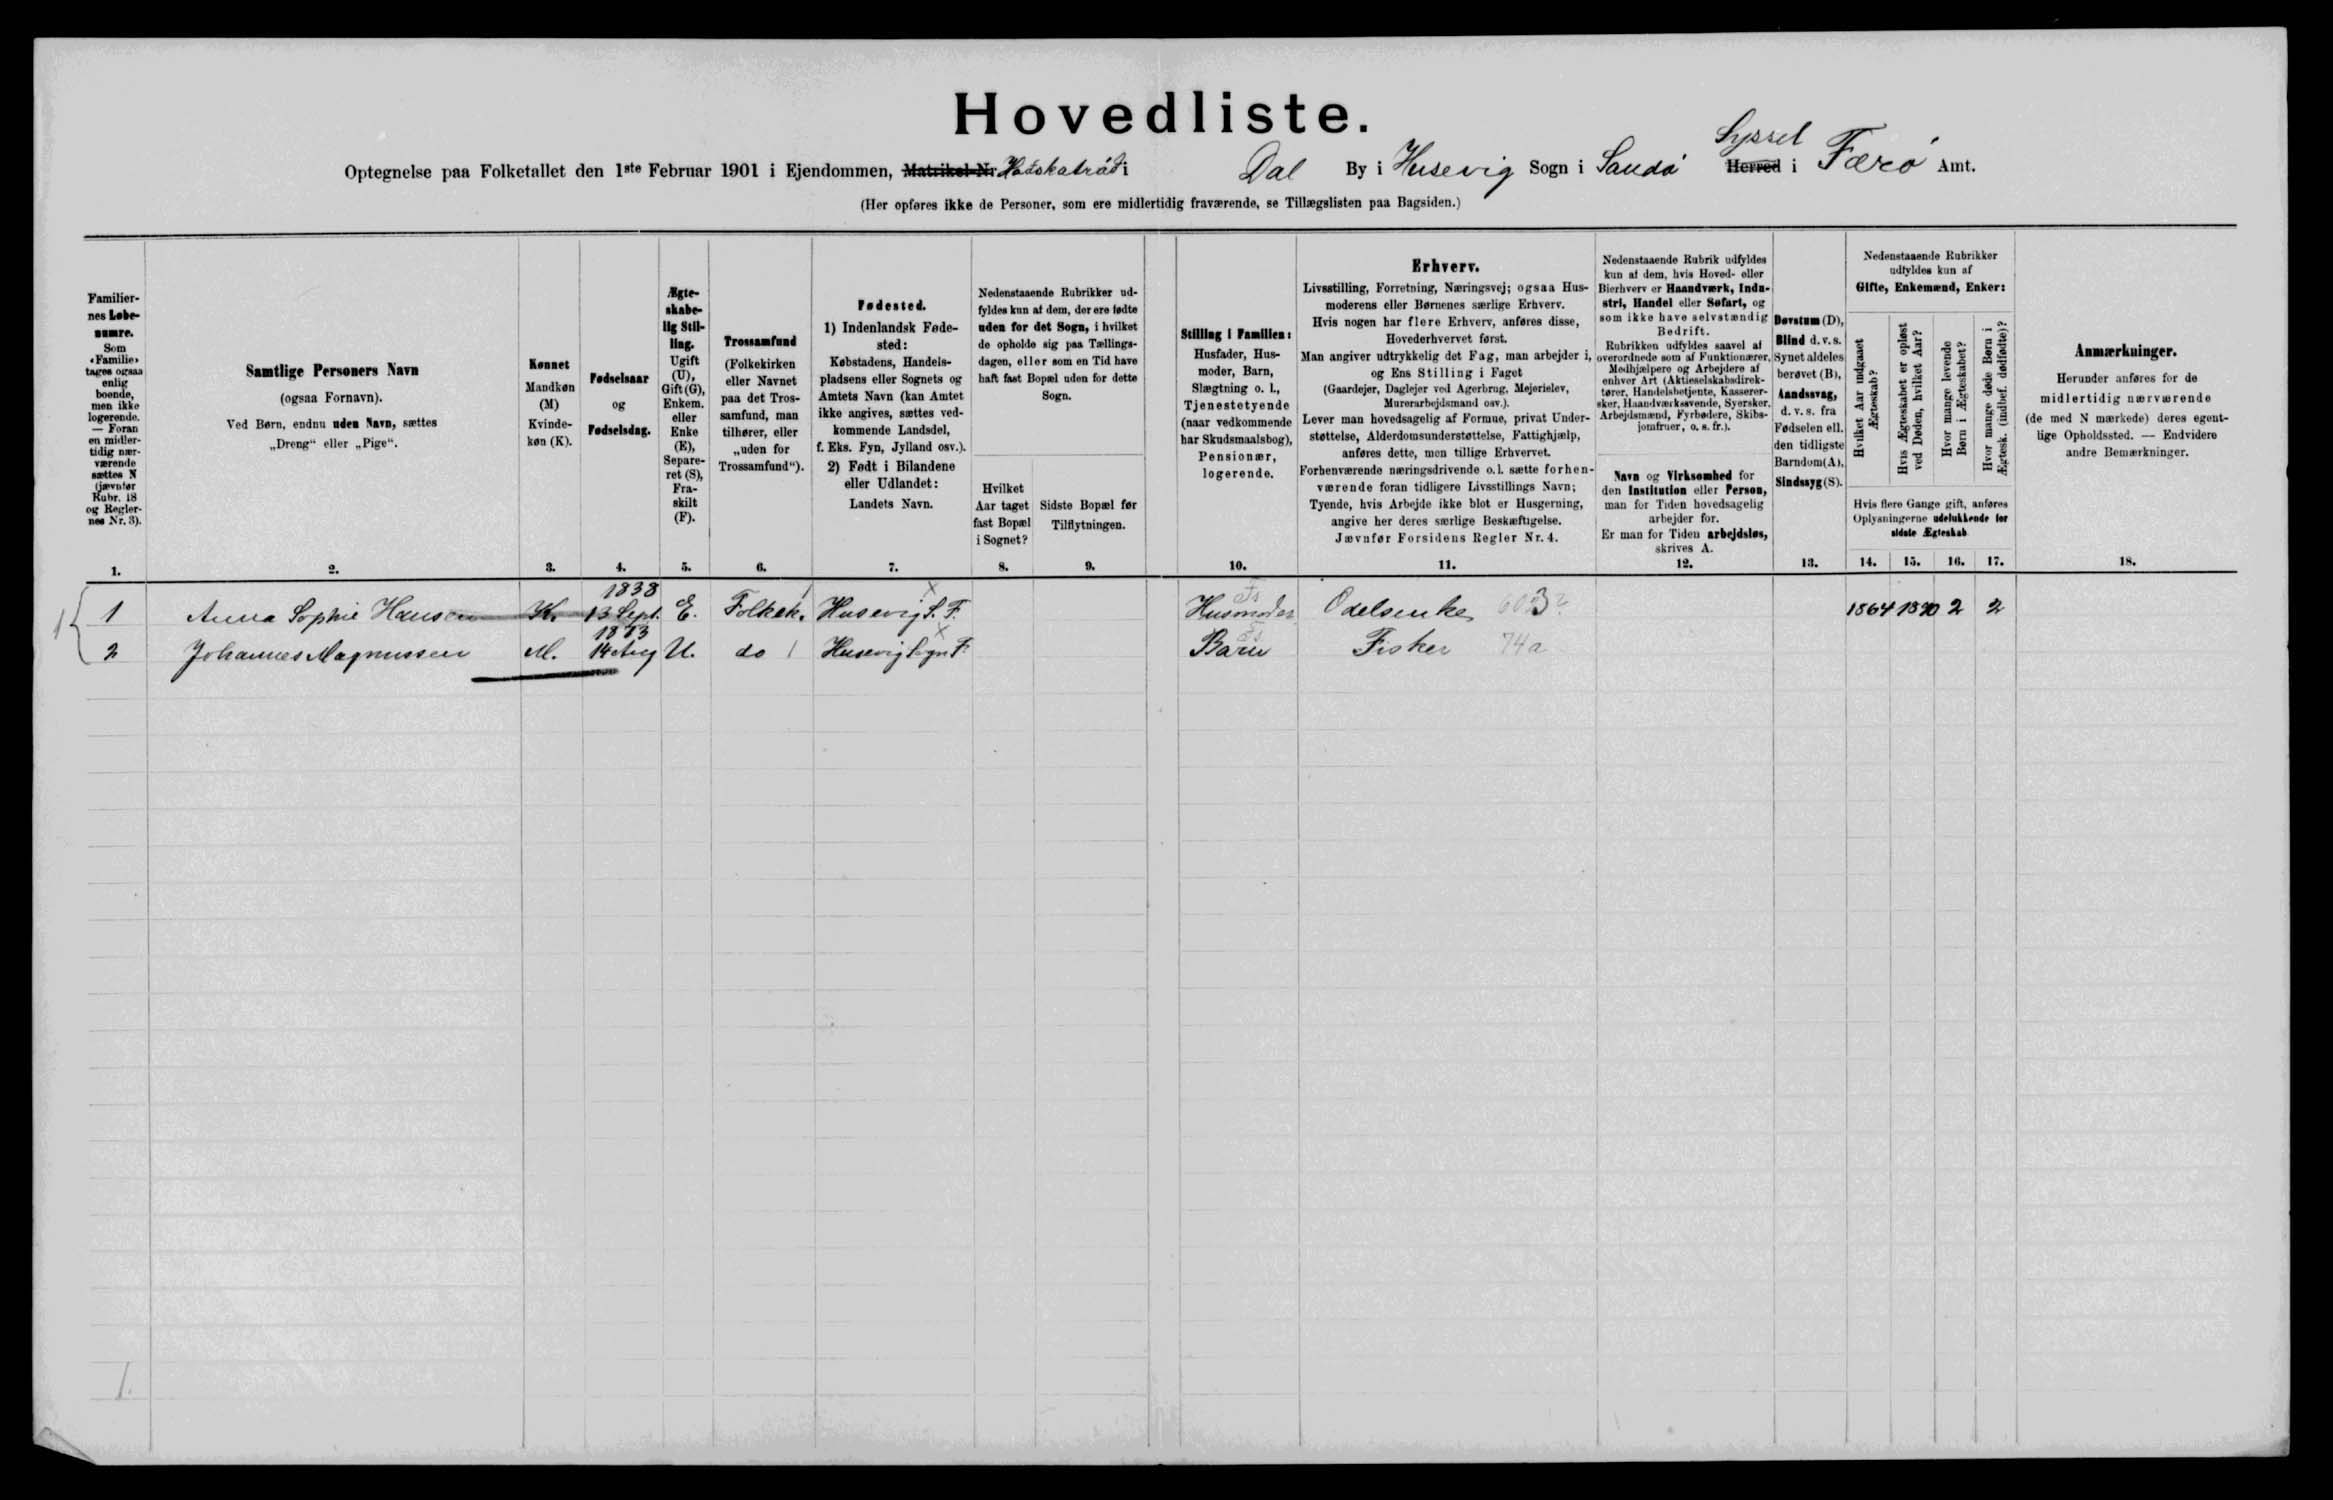 Hovedliste.
Optegnelse paa Folketallet den 1ste Februar 1901 i Ejendommen, Matrikel-Nr i Dal By i Husevig Sogn i Sandø Herred Syssel i Færø Amt.
(Her opføres ikke de Personer, som ere midlertidig fraværende, se Tillægslisten paa Bagsiden.)
Familier-
nes Løbe-
numre.
Som
«Familie»
tages ogsaa
enlig
boende,
men ikke
logerende.
— Foran
en midler-
tidig nær-
værende
sættes N
(jævnfør
Rubr. 18
og Regler-
nes Nr. 3).
Samtlige Personers Navn
(ogsaa Fornavn).
Ved Børn, endnu uden Navn, sættes
„Dreng“ eller „Pige“.
Kønnet
Mandkøn
(M)
Kvinde-
køn (K).
Fødselsaar
og
Fødselsdag.
Ægte-
skabe-
lig Stil-
ling.
Ugift
(U),
Gift (G),
Enkem.
eller
Enke
(E),
Separe-
ret (S),
Fra-
skilt
(F).
Trossamfund
(Folkekirken
eller Navnet
paa det Tros-
samfund, man
tilhører, eller
„uden for
Trossamfund“).
Fødested.
1) IndenlandskFøde-
sted:
Købstadens, Handels-
pladsens eller Sognets og
Amtets Navn (kan Amtet
ikke angives, sættes ved-
kommende Landsdel,
f. Eks. Fyn, Jylland osv.).
2) Født i Bilandene
eller Udlandet:
Landets Navn.
Nedenstaaende Rubrikker ud-
fyldes kun af dem, der ere fødte
uden for det Sogn, i hvilket
de opholde sig paa Tællings-
dagen, eller som en Tid have
haft fast Bopæl uden for dette
Sogn.
Hvilket
Aar taget
fast Bopæl
i Sognet?
Sidste Bopæl før
Tilflytningen.
Stilling i Familien:
Husfader, Hus-
moder, Barn,
Slægtning o. l.,
Tjenestetyende
(naar vedkommende
har Skudsmaalsbog),
Pensionær,
logerende.
Erhverv.
Livsstilling, Forretning, Næringsvej; ogsaa Hus-
moderens eller Børnenes særlige Erhverv.
Hvis nogen har flere Erhverv, anføres disse,
Hovederhvervet først.
Man angiver udtrykkelig det Fag, man arbejder i,
og Ens Stilling i Faget
(Gaardejer, Daglejer ved Agerbrug, Mejerielev,
Murerarbejdsmand osv.).
Lever man hovedsagelig af Formue, privat Under-
støttelse, Alderdomsunderstøttelse, Fattighjælp,
anføres dette, men tillige Erhvervet.
Forhenværende næringsdrivende o. l. sætte forhen-
værende foran tidligere Livsstillings Navn;
Tyende, hvis Arbejde ikke blot er Husgerning,
angive her deres særlige Beskæftigelse.
Jævnfør Forsidens Regler Nr. 4.
Nedenstaaende Rubrik udfyldes
kun af dem, hvis Hoved- eller
Bierhverv er Haandværk, Indu-
stri, Handel eller Søfart, og
som ikke have selvstændig
Bedrift.
Rubrikken udfyldes saavel af
overordnede som af Funktionærer,
Medhjælpere og Arbejdere af
enhver Art (Aktieselskabsdirek-
tører, Handelsbetjente, Kasserer-
sker, Haandværkssvende, Syersker,
Arbejdsmænd, Fyrbødere, Skibs-
jomfruer, o. s. fr.).
Navn og Virksomhed for
den Institution eller Person,
man for Tiden hovedsagelig
arbejder for.
Er man for Tiden arbejdsløs,
skrives A.
Døvstum (D),
Blind d. v. s.
Synet aldeles
berøvet (B),
Aandssvag,
d. v. s. fra
Fødselen ell.
den tidligste
Barndom (A),
Sindssyg (S).
Nedenstaaende Rubrikker
udfyldes kun af
Gifte, Enkemænd, Enker:
Hvilket Aar indgaaet
Ægteskab?
Hvis Ægteskabet er opløst
ved Døden, hvilket Aar?
Hvor mange levende
Børn i Ægteskabet?
Hvor mange døde Børn i
Ægtesk. (indbef. dødfødte)?
Hvis flere Gange gift, anføres
Oplysningerne udelukkende for
sidste Ægteskab
Anmærkninger.
Herunder anføres for de
midlertidig nærværende
(de med N mærkede) deres egent-
lige Opholdssted. — Endvidere
andre Bemærkninger.
1. 2. 3. 4. 5. 6. 7. 8. 9. 10. 11. 12. 13. 14. 15. 16. 17. 18.
1838
1 Anna Sophie Hansen K. 13 Sept. E. Folkek. Husevig S. F. Husmoder Odelsenke 1864 1890 2 2
1873
2 Johannes Magnussen M. 14 Aug U. do Husevig Sogn F. Barn Fisker 74a
1.